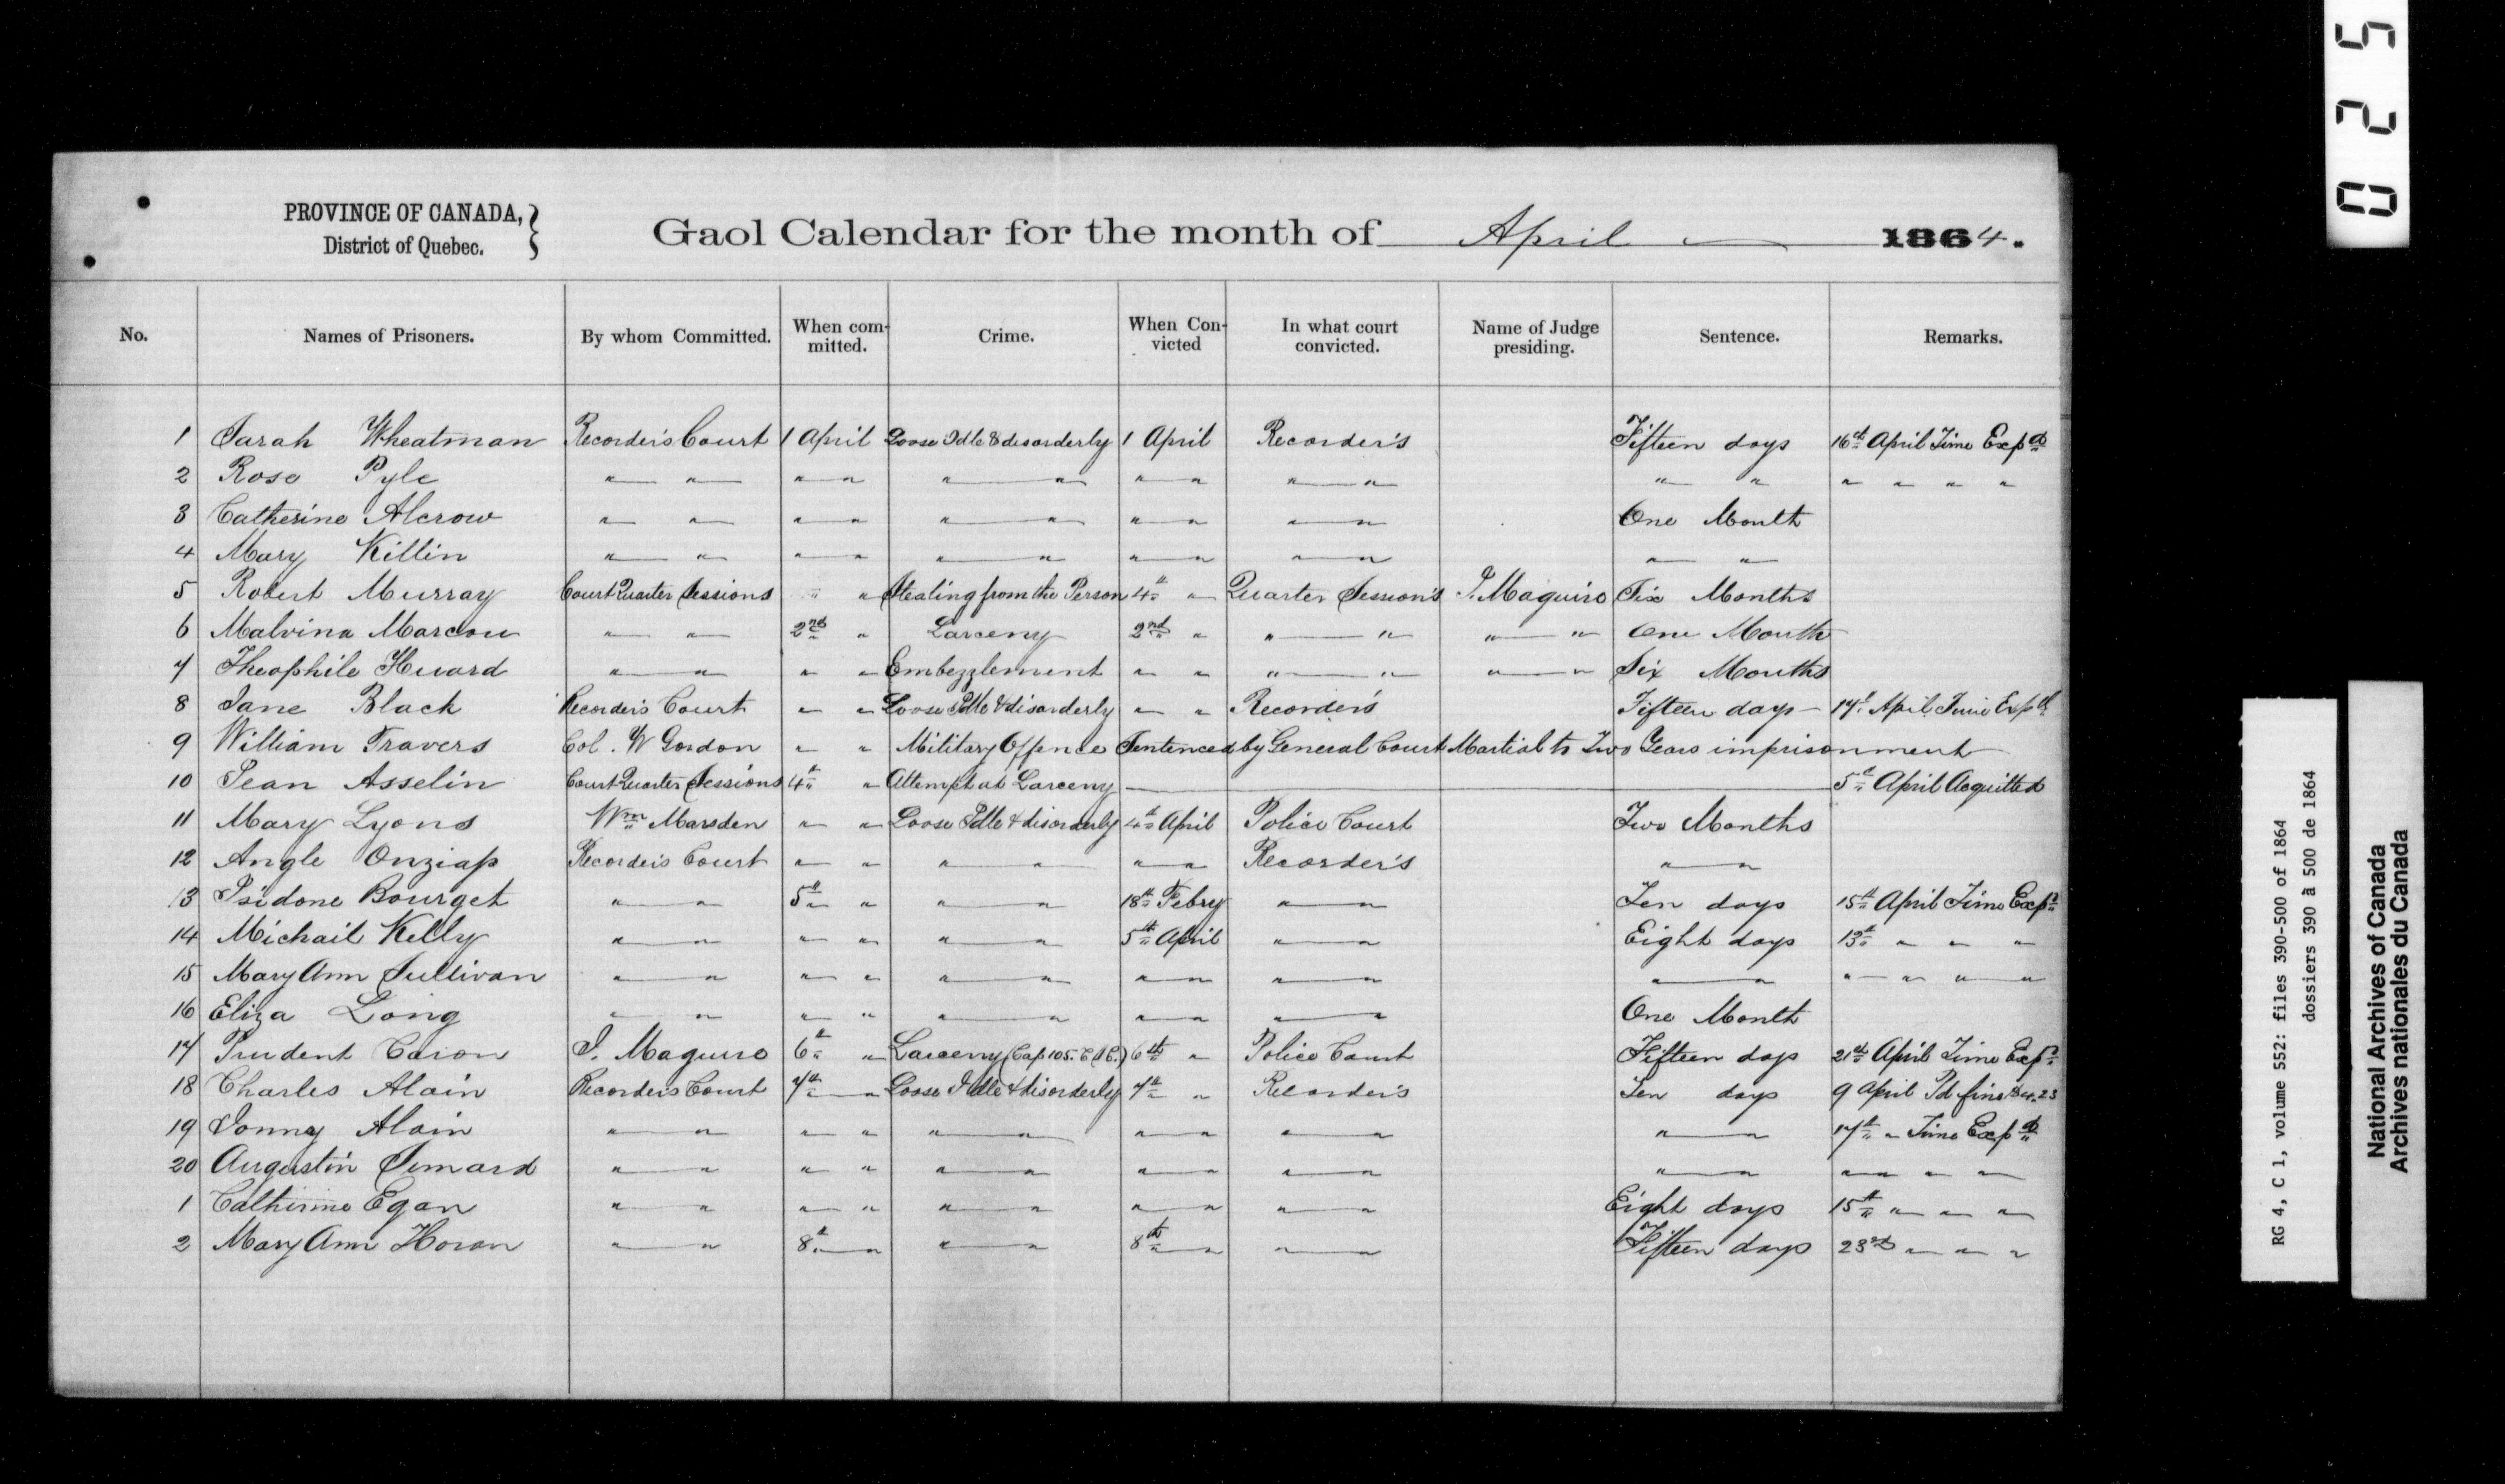 PROVINCE OF CANADA,
District of Quebec.
Gaol Calendar for the month of April 1864.
No. Names of Prisoners. By whom Committed. When com-mitted. Crime. When Con-victed In what court convicted. Name of Judge presiding. Sentence. Remarks.
1 Sarah Wheatman Recorder's Court 1 April Loose Idle & disorderly 1 April Recorder's Fifteen days 16th April Time Expd
2 Rose Pyle " " " " " " " " " " " " " " " "
3 Catherine Alcrow " " " " " " " " " " One Month
4 Mary Killin " " " " " " " " " " " "
5 Robert Murray Court Quarter Sessions " " Stealing from the Person 4th " Quarter Session's J. Maguire Six Months
6 Malvina Marcou " " 2nd " Larceny 2nd " " " " " One Month
7 Theophile Huard " " " " Embezzlement " " " " " " Six Months
8 Jane Black Recorder's Court " " Loose Idle & disorderly " " Recorder's Fifteen days 17th April Time Expd
9 William Travers Col. W Gordon " " Military Offence Sentenced by General Court Martial to Two Years imprisonment
10 Jean Asselin Court Quarter Sessions 4th " Attempt at Larceny 5th April Acquitted
11 Mary Lyons Wm Marsden " " Loose Idle & disorderly 4th April Police Court Two Months
12 Angle Onziap Recorder's Court " " " " " " Recorder's " "
13 Isidone Bourget " " 5th " " " 18th Febry " " Ten days 15th April Time Expd
14 Michail Kelly " " " " " " 5th April " " Eight days 13th " " "
15 Mary Ann Sullivan " " " " " " " " " " " " " " " "
16 Eliza Long " " " " " " " " " " One Month
17 Prudent Caron J. Maguire 6th " Larceny (Cap. 105. C.A.C.) 6th " Police Court Fifteen days 21st April Time Expd
18 Charles Alain Recorder's Court 7th " Loose Idle & disorderly 7th " Recorder's Ten days 9 April Pd fine $4.23
19 Jonny Alain " " " " " " " " " " " " 17th " Time Expd
20 Augustin Simard " " " " " " " " " " " " " " " "
1 Catherine Egan " " " " " " " " " " Eight days 15th " " "
2 Mary Ann Horan " " 8th " " " 8th " " " Fifteen days 23rd " " "
025
RG 4, C 1, volume 552: files 390-500 of 1864
dossiers 390 à 500 de 1864
National Archives of Canada
Archives nationales du Canada